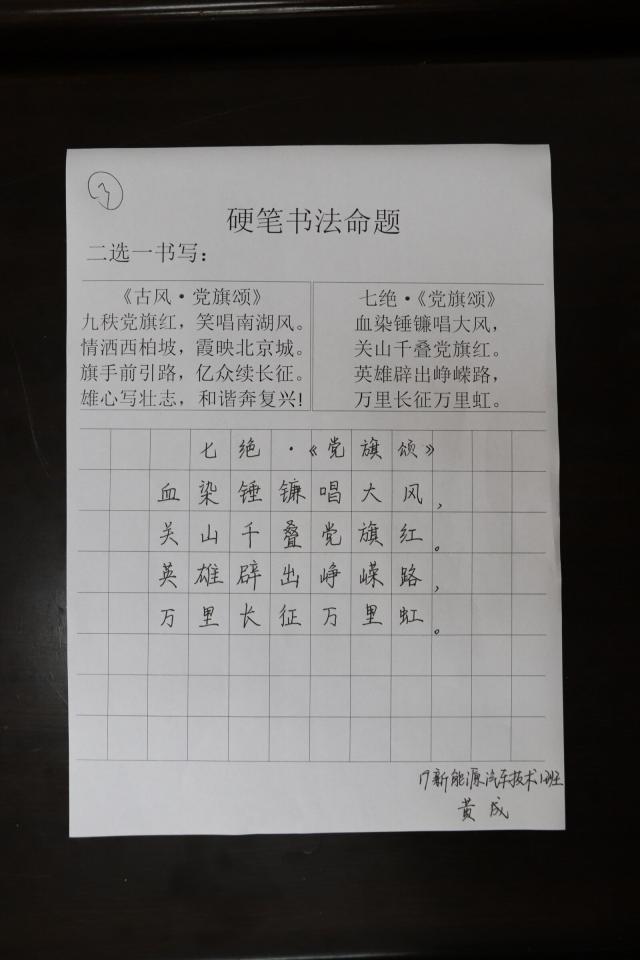 硬笔书法命题
二选一书写：
《古风·党旗颂》
九秩党旗红，笑唱南湖风。
情洒西柏坡，霞映北京城。
旗手前引路，亿众续长征。
雄心写壮志，和谐奔复兴!
七绝·《党旗颂》
血染锤镰唱大风，
关山千叠党旗红。
英雄辟出峥嵘路，
万里长征万里虹。
七绝·《党旗颂》
血染锤镰唱大风，
关山千叠党旗红。
英雄辟出峥嵘路，
万里长征万里虹。
17新能源汽车技术1班
黄成